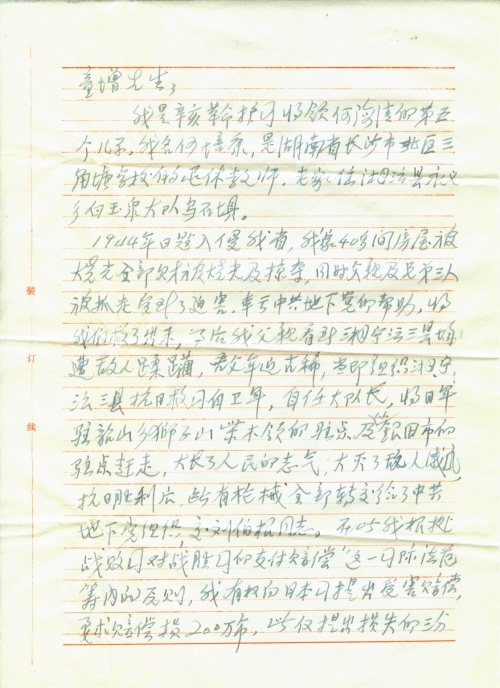 童增先生:
我是辛亥革命护国将领何海清的第五
个儿子。我名何培康,是湖南省长沙市北区三
角塘学校的退休教师,老家住湘潭县永义
乡白玉泉大队乌石坝。
1944年日寇入侵我省,我家40多间房屋被
烧光全部财产被烧光及掠夺,同时父亲及兄弟三人
被抓走受到了迫害,幸亏中共地下党的帮助,将
我们救了出来,了后我父亲看到湘宁沅三县场
遭敌人蹂躏,吾父年近古稀,当即组织湘宁
沅三县抗日救国自卫军,自任大队长,将日军
驻韶山乡狮子山 柴木领的驻点及银田市的
驻点赶走,大长了人民的志气,大灭了敌人威风
抗日胜利后,所有枪械全部转交给了中共
地下党组织,交刘伯根同志。 在此我根据
战败国对战胜国的支付赔偿“这一国际法范
筹内的原则,我有权向日本国提出受害赔偿,
要求赔偿损200万布,此仅提出损失的三分